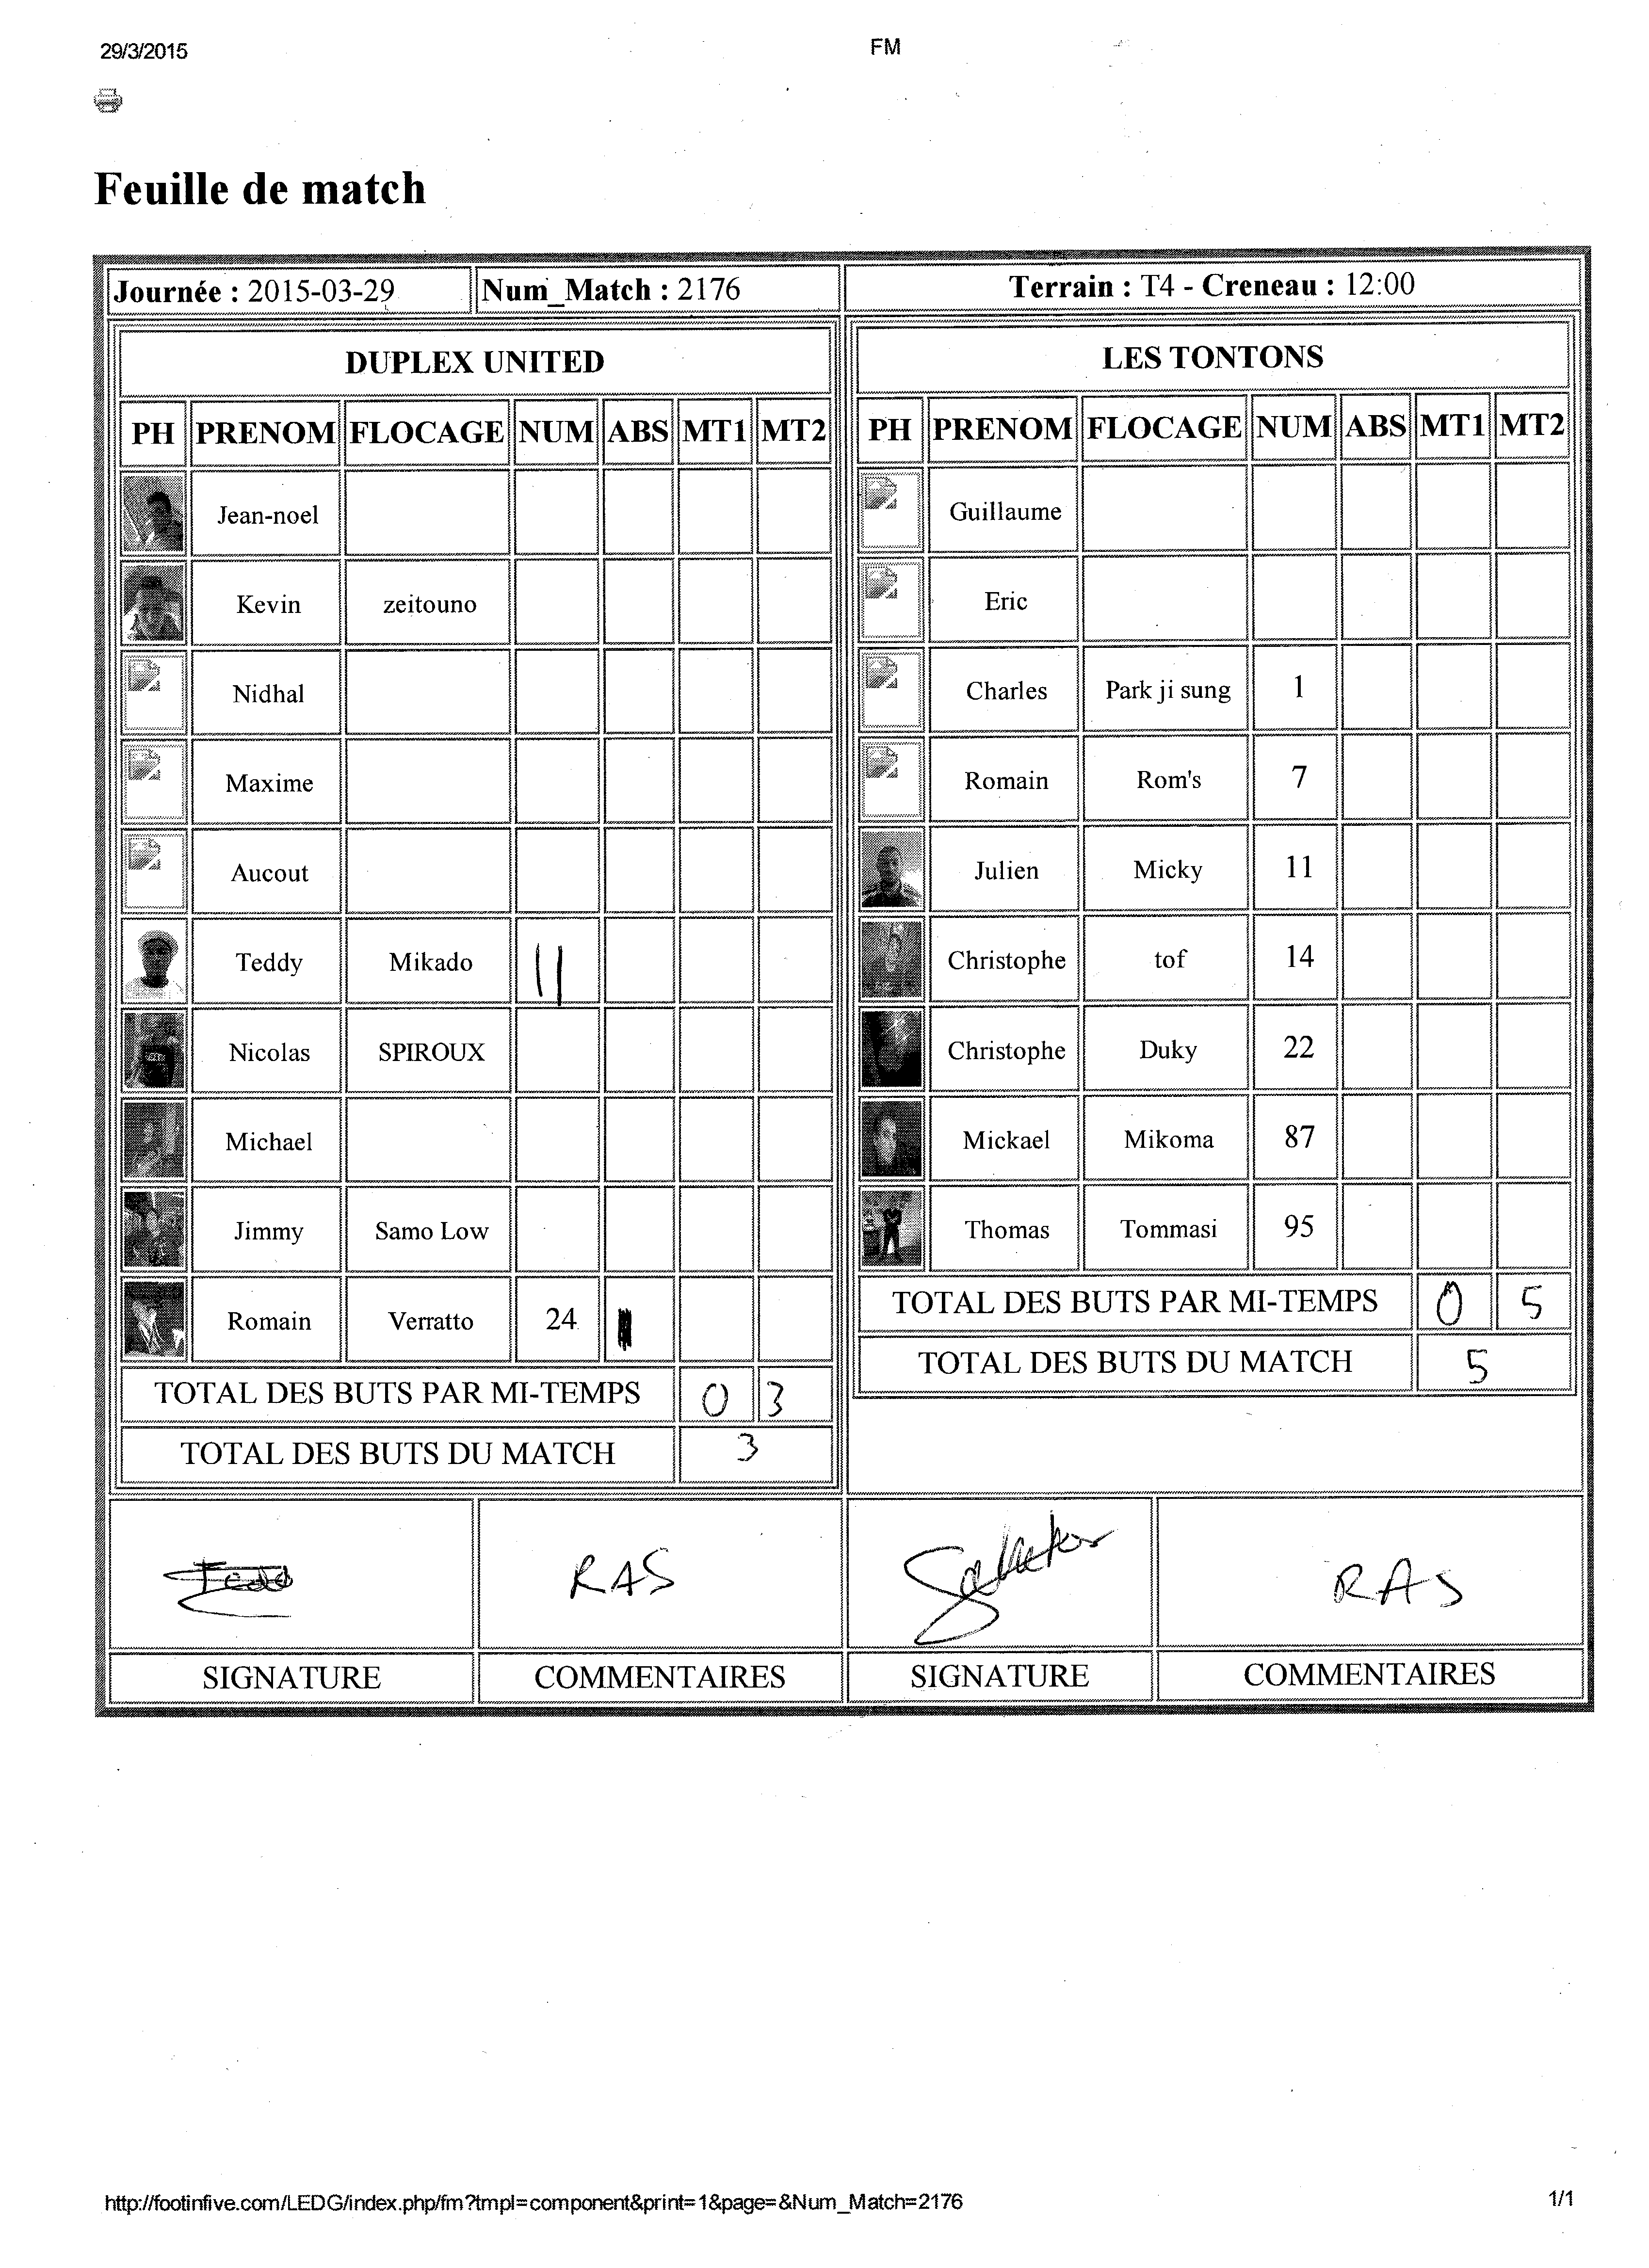 29/3/2015
FM
Feuille de match
Journée : 2015-03-29
Num_Match : 2176
Terrain : T4 - Creneau : 12:00
DUPLEX UNITED
PH PRENOM FLOCAGE NUM ABS MT1 MT2
Jean-noel
Kevin zeitouno
Nidhal
Maxime
Aucout
Teddy Mikado 11
Nicolas SPIROUX
Michael
Jimmy Samo Low
Romain Verratto 24
TOTAL DES BUTS PAR MI-TEMPS 0 3
TOTAL DES BUTS DU MATCH 3
LES TONTONS
PH PRENOM FLOCAGE NUM ABS MT1 MT2
Guillaume
Eric
Charles Park ji sung 1
Romain Rom's 7
Julien Micky 11
Christophe tof 14
Christophe Duky 22
Mickael Mikoma 87
Thomas Tommasi 95
TOTAL DES BUTS PAR MI-TEMPS 0 5
TOTAL DES BUTS DU MATCH 5
RAS
RAS
SIGNATURE COMMENTAIRES SIGNATURE COMMENTAIRES
http://footinfive.com/LEDG/index.php/fm?tmpl=component&print=1&page=&Num_Match=2176
1/1